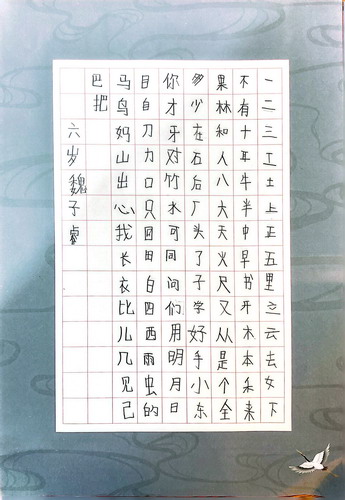 一二三工土上正五里立云去女下
不有十耳牛半中早书开木本禾来
果林和人八大天火尺又从是个全
多少在石后厂头了子学好手小东
你才牙对竹水可同问们用明月日
目自刀力口只回田白四西雨虫的
马鸟妈山出心我长衣比儿几见己
巴把
六岁魏子睿